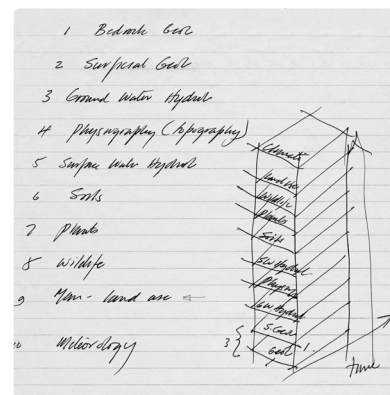 1 Bedrock Geol
2 Surficial Geol
3 Ground Water Hydrol
4 Physiography (topography)
5 Surface Water Hydrol
6 Soils
7 Plants
8 Wildlife
9 Man - land use ←
10 Meteorology
Climate
Land Use
Wildlife
Plants
Soils
SW Hydrol
Physiog
GW Hydrol
S Geol
3 { Geol 1.
time